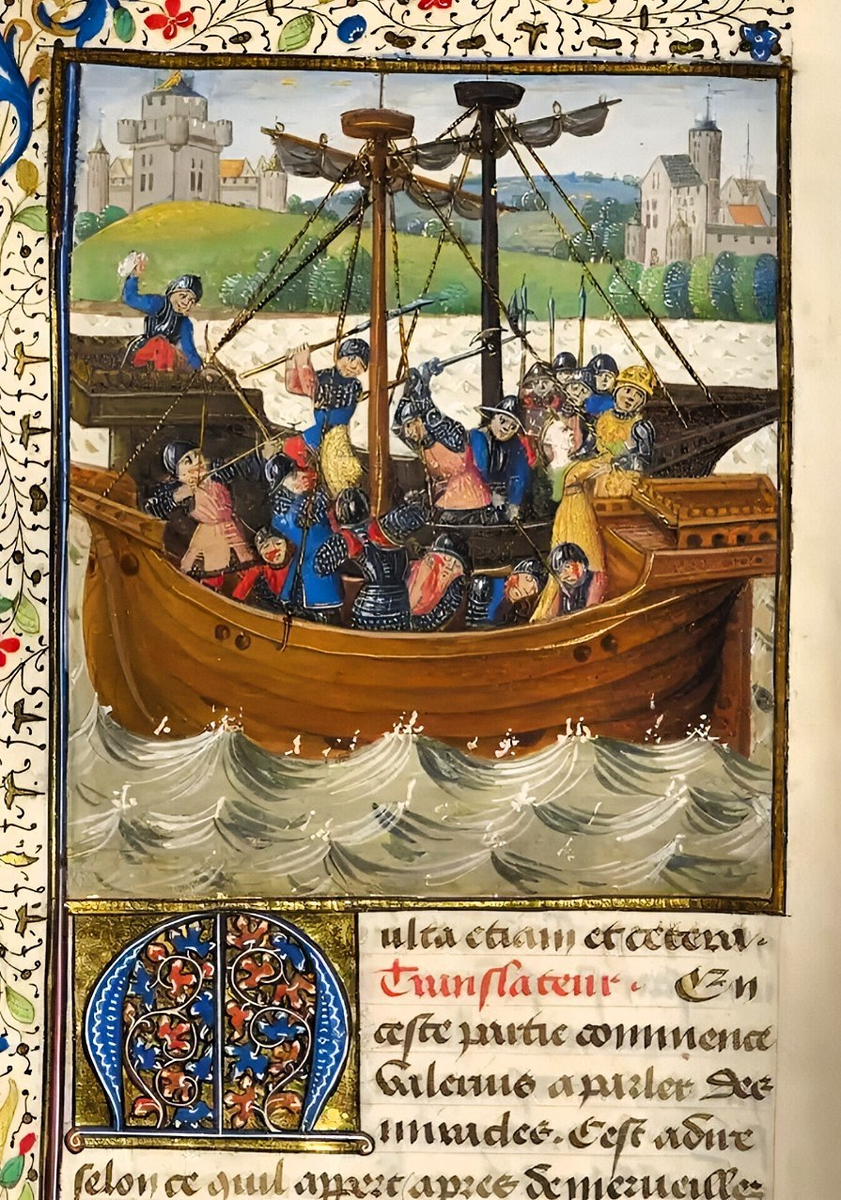 Multa etiam et cetera.
Translateur. En
ceste partie commence
Valerius a parler des
miracles. Cest adire
selon ce quil appert apres de merveilles